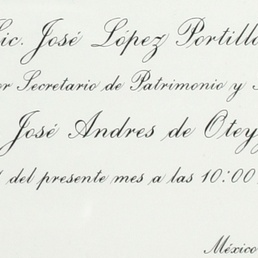 Lic. José López Portillo
Secretario de Patrimonio y
José Andres de Otey
del presente mes a las 10:00
México